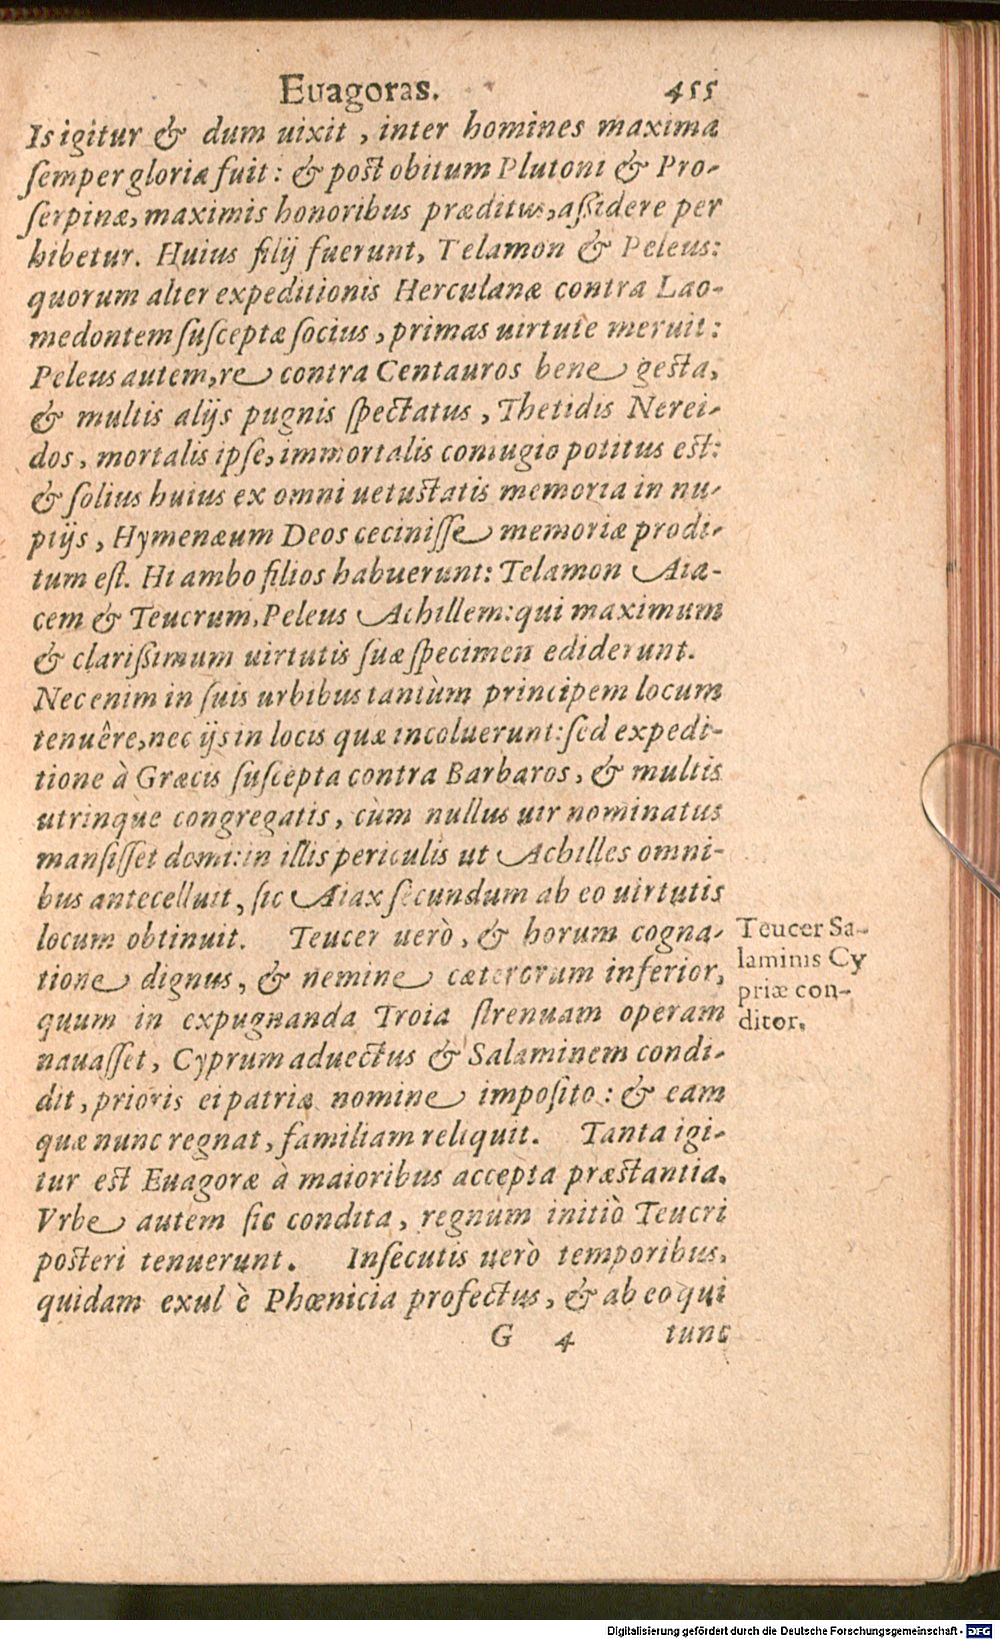 Euagoras. 455
Is igitur & dum uixit, inter homines maxima
semper gloria fuit: & post obitum Plutoni & Pro-
serpinæ, maximis honoribus præditus, assidere per
hibetur. Huius filij fuerunt, Telamon & Peleus:
quorum alter expeditionis Herculanæ contra Lao-
medontem susceptæ socius, primas uirtute meruit:
Peleus autem, re contra Centauros bene gesta,
& multis alijs pugnis spectatus, Thetidis Nerei-
dos, mortalis ipse, immortalis coniugio potitus est:
& solius huius ex omni uetustatis memoria in nu-
ptijs, Hymenæum Deos cecinisse memoriæ prodi-
tum est. Hi ambo filios habuerunt: Telamon Aia-
cem & Teucrum, Peleus Achillem: qui maximum
& clarissimum uirtutis suæ specimen ediderunt.
Nec enim in suis urbibus tantùm principem locum
tenuêre, nec ijs in locis quæ incoluerunt: sed expedi-
tione à Græcis suscepta contra Barbaros, & multis
utrinque congregatis, cùm nullus uir nominatus
mansisset domi: in illis periculis ut Achilles omni-
bus antecelluit, sic Aiax secundum ab eo uirtutis
locum obtinuit. Teucer uerò, & horum cogna-
tione dignus, & nemine cæterorum inferior,
quum in expugnanda Troia strenuam operam
nauasset, Cyprum aduectus & Salaminem condi-
dit, prioris ei patriæ nomine imposito: & eam
quæ nunc regnat, familiam reliquit. Tanta igi-
tur est Euagoræ à maioribus accepta præstantia.
Vrbe autem sic condita, regnum initiò Teucri
posteri tenuerunt. Insecutis uerò temporibus,
quidam exul è Phœnicia profectus, & ab eo qui
G 4 tunc
Teucer Sa-
laminis Cy
priæ con-
ditor.
Digitalisierung gefördert durch die Deutsche Forschungsgemeinschaft - DFG